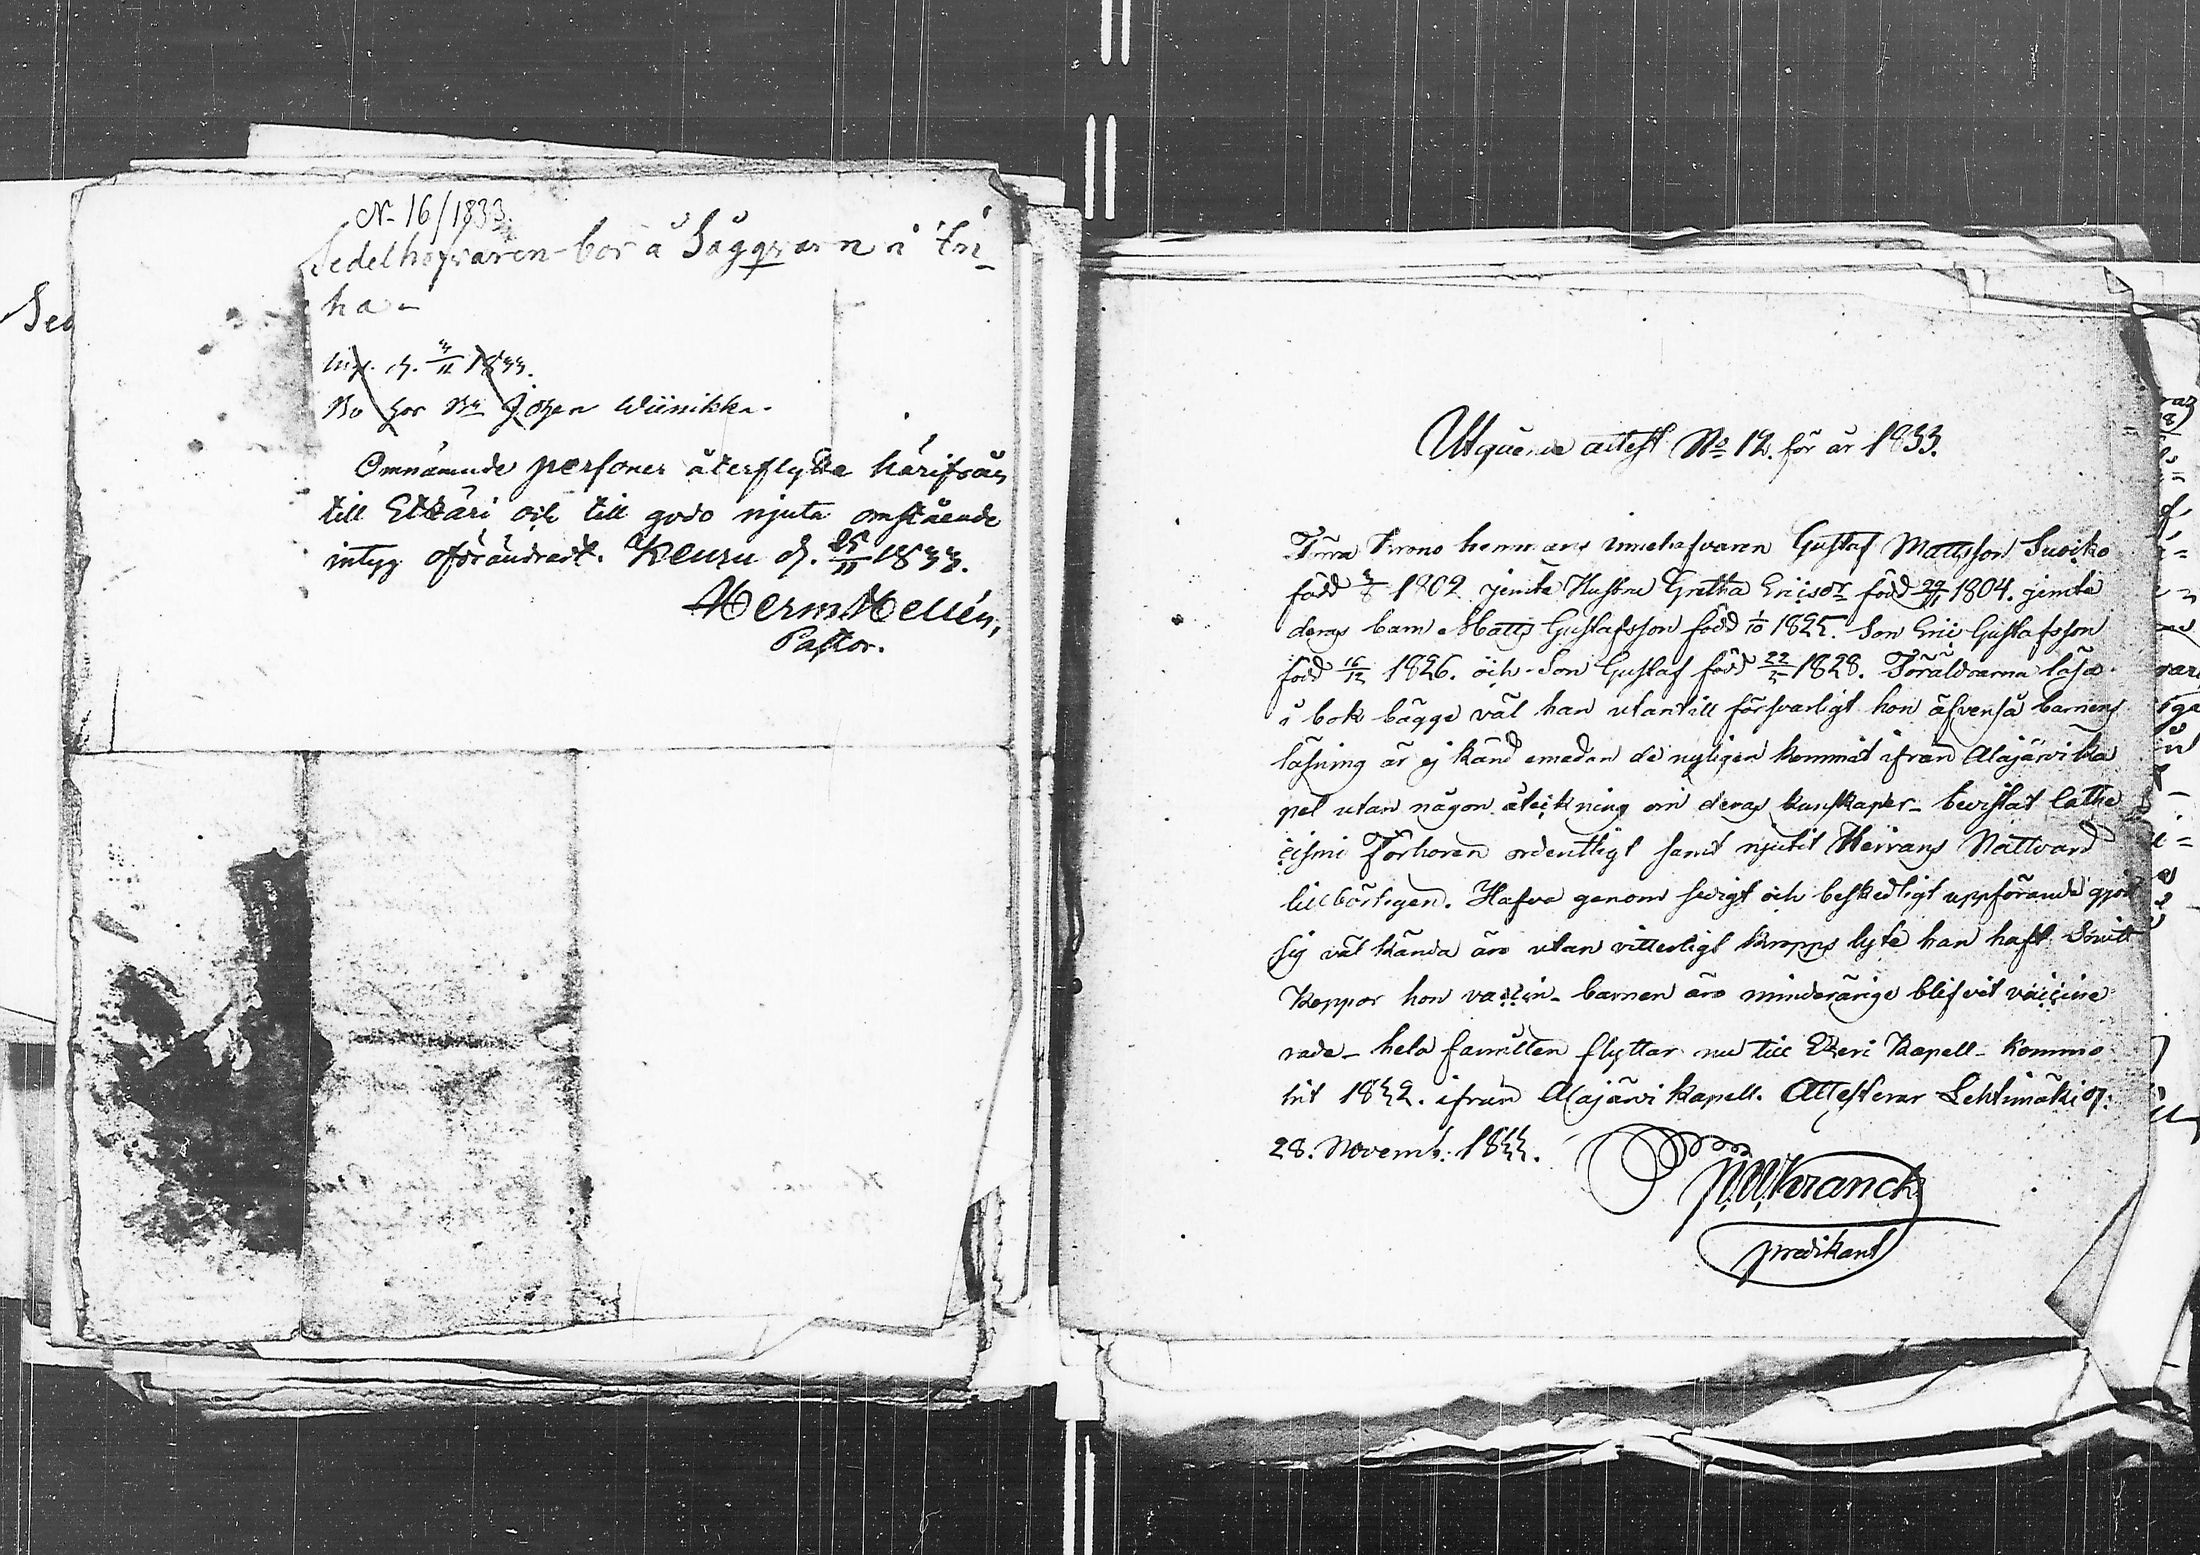 N. 16/1833.
Sedelhafvaren bor å Sågqvarn i Eri
ha -
d. 3/11 1833.
Bo hos Bn Johan Wiinikka.
Omnämnde personer återflytta härifrån
till Etzäri och till godo njuta omstående
intyg oförändradt. Keuru d. 25/11 1833.
Herm Hellén,
Pastor.
Sed
Utgående attest No 12. för år 1833.
Förra Krono hemmans innehafvaren Gustaf Mattsson Suoiko
född 3/8 1802 jemte Hustru Gretha Ericsdr född 29/11 1804. jemte
deras barn Matts Gustafsson född 1/10 1825. Son Eric Gustafsson
född 16/12 1826. och Son Gustaf född 22/5 1828. Föräldrarna läsa
i bok bägge väl han utantill försvarligt hon äfvenså barnens
läsning är ej känd emedan de nyligen kommit ifrån Alajärvi ka
pel utan någon åteckning om deras kunskaper - bevistat Cathe
cismi Förhören ordentligt samt njutit Herrans Nattvard
tillbörligen. Hafva genom sedigt och beskedligt uppförande gjort
sig väl kända äro utan vitterligt kropps lyte han haft
Koppor hon vaccin - barnen äro minderårige blifvit vaccine
rade - hela familien flyttar nu till Etzeri Kapell - kommo
hit 1832. ifrån Alajärvi Kapell. Attesterar Lehtimäki d.
28. Novemb. 1833.
Kranck
predikant